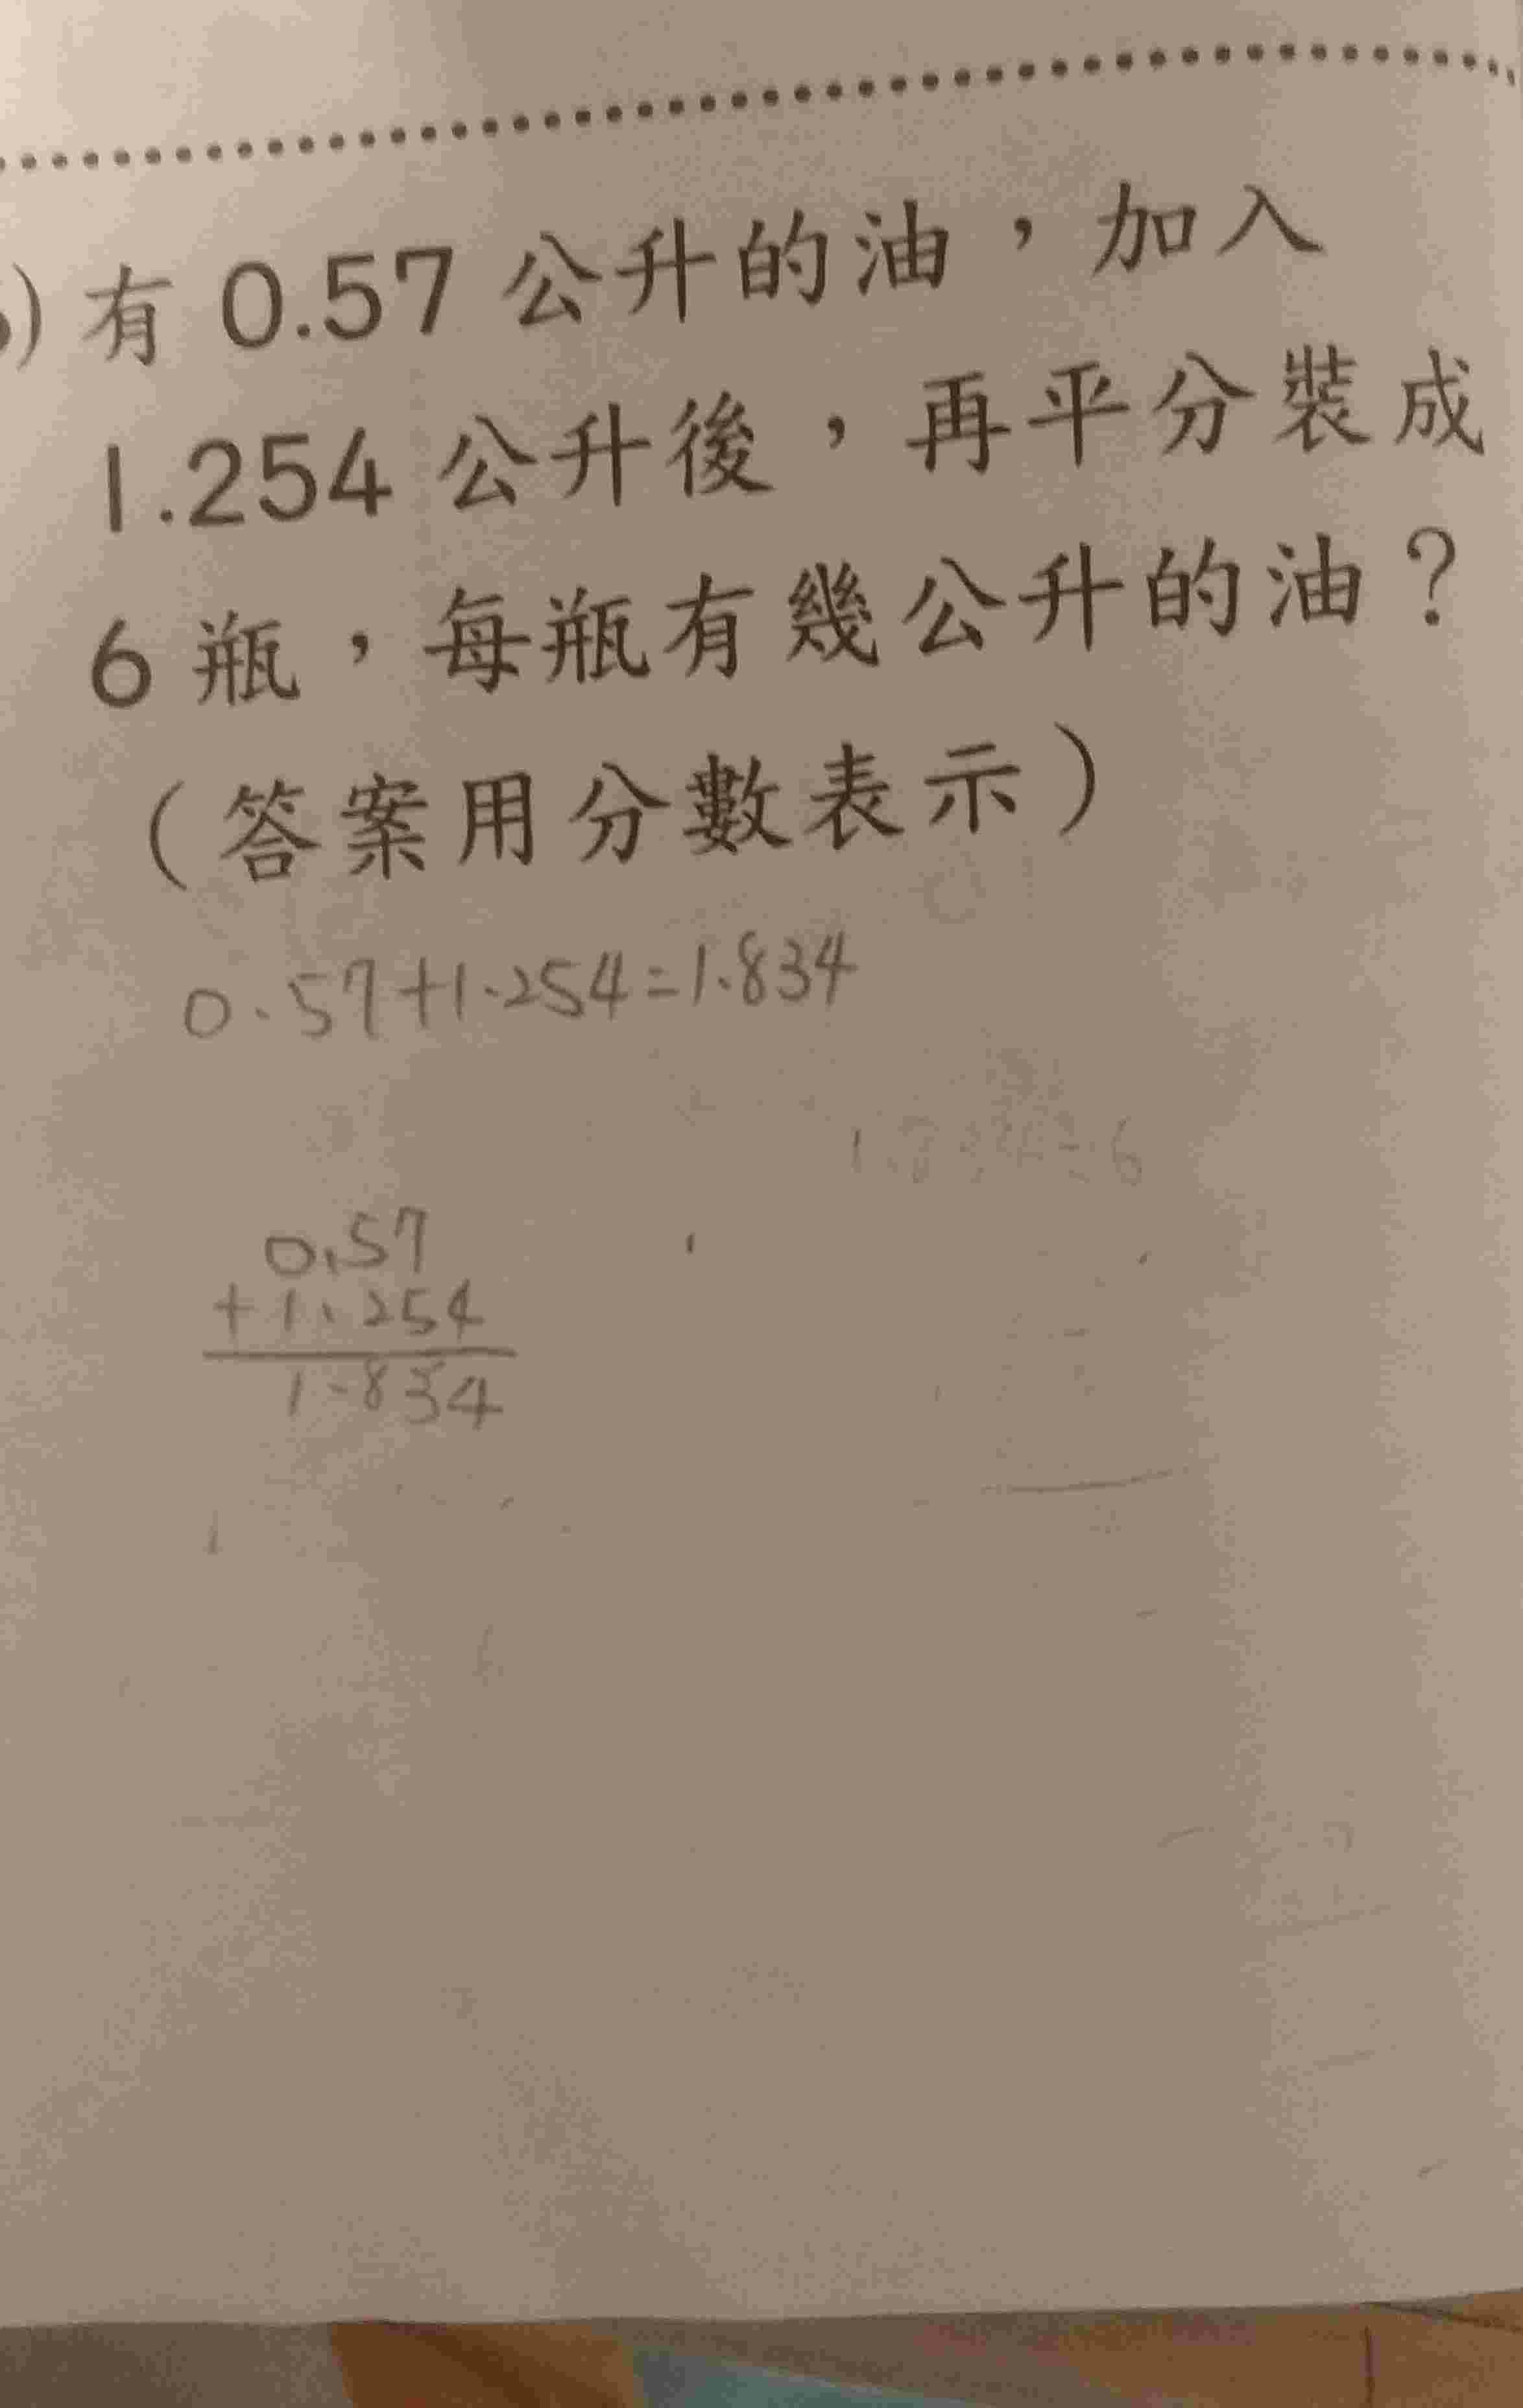 )有 0.57 公升的油，加入
1.254 公升後，再平分裝成
6 瓶，每瓶有幾公升的油？
（答案用分數表示）
0.57+1.254=1.834
0.57
+1.254
1.834